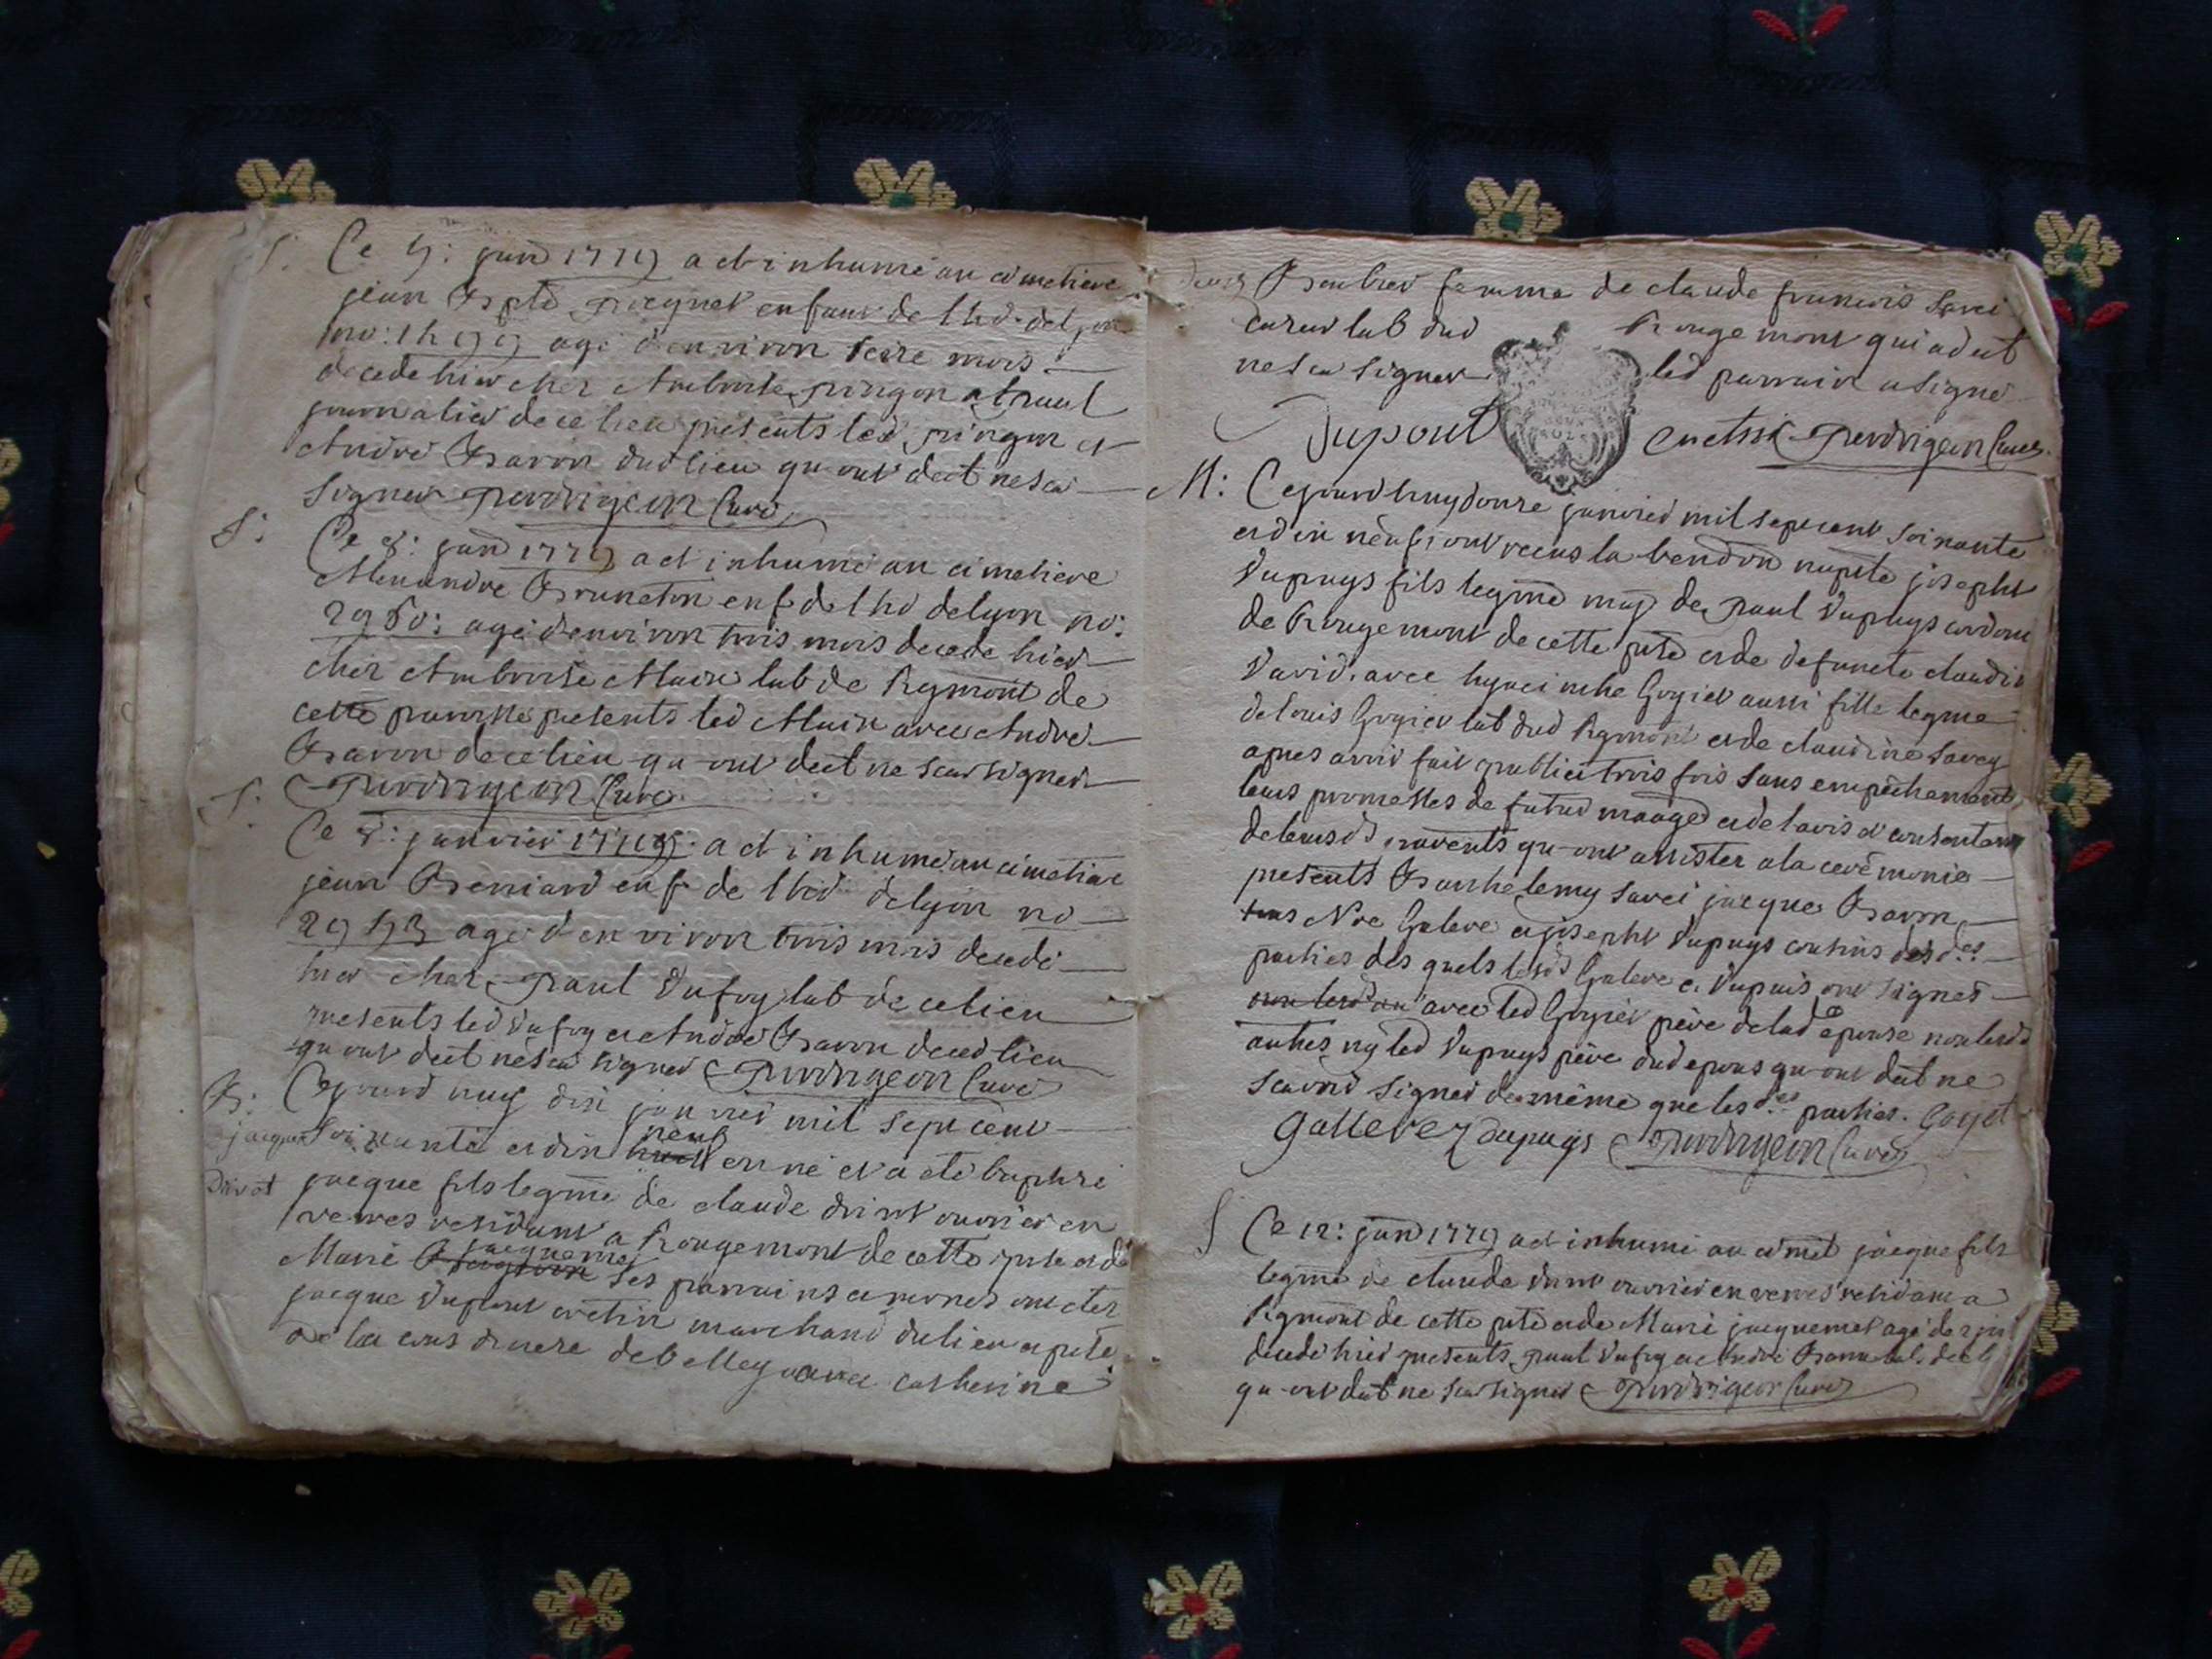 S. Ce 4: janv 1779 a et inhumé au cimetiere
jean Bpte enfant de lhd. de lyon
no: age d'environ seize mois
decede hier chez Ambroise pingon
journalier de ce lieu presents led. pingon et
André Baron dud lieu qu ont dect ne sca
signer Perdrigeon Curé
S: Ce 8: janv 1779 a et inhumé au cimetiere
Bruneton enf de lhd de lyon no:
2980: agé d'environ trois mois decede hier
chez Ambroise Alain lab de Rgmont de
cette parroisse presents led Alain avec André
Baron de ce lieu qu ont dect ne scav signer
Perdrigeon Curé
S. Ce 8: janvier 1779. a et inhumé au cimetiere
jean enf de lhd de lyon no
age d'environ trois mois decede
hier chez Paul Dufoy lab de ce lieu
presents led Dufoy et André Baron de ced lieu
qu ont dect ne sca signer Perdrigeon Curé
B: Cejourd huy dix janvier mil sept cent
jacque soixante et dix neuf en né et a eté baptizé
Drivet jacque fils legme de claude drivet ouvrier en
verres residant a Rougemont de cette pste et de
Marie jacquemet ses parrains et marenes ont etez
jacque Dupont cretin marchand du lieu et pste
de avec catherine
femme de claude francois Savei
lab dud Rougemont qui a dect
ne sca signer led parrain a signé
Dupont cretin Perdrigeon Curé
M: Cejourd huy douze janvier mil sept cent soixante
et dix neuf; ont recus la bendon nuptle joseph
Dupuys fils legme maj de Paul Dupuys
de Rougemont de cette pste et de defuncte claudi
David. avec hyacinthe Goyiet aussi fille legme
de louis Goyiet lab dud Rgmont et de claudine Savey
apres avoir fait publier trois fois sans empêchement
leurs promesses de futur maage et de l'avis et consentem
de leursds parents qu ont assister a la ceremonie
presents Barthelemy Savei jacque Baron
Galeve et joseph Dupuys cousins desdes
parties des quels lesds Galeve et Dupuis ont signes
avec led Goyiet père de lad épouse non lesds
autres ny led Dupuys père dud epous qu ont dect ne
scavoir signer de même que lesdes parties. Goyet
Galleve Dupuys Perdrigeon Curé
S Ce 12: janv 1779 a et inhumé au cimet jacque fils
legme de claude drivet ouvrier en verres residant a
Rgmont de cette pste et de Marie jacquemet agé de 2 jrs
decede hier presents Paul Dufoy et André Baron
qu ont dect ne scav signer Perdrigeon Curé